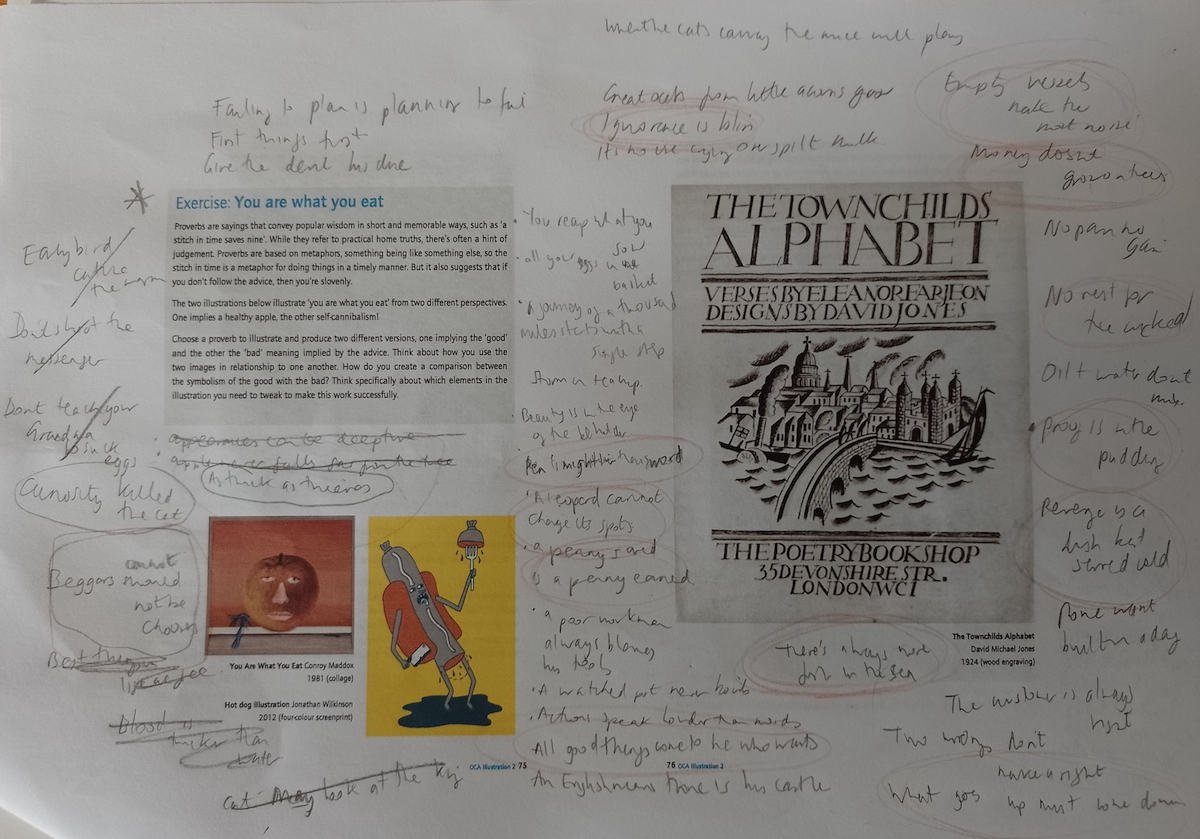 When the cats away the mice will play
Failing to plan is planning to fail
First things first
Give the devil his due
Great oaks from little acorns grow
Ignorance is bliss
It's no use crying over spilt milk
Empty vessels
make the
most noise
Money doesnt
grow on trees
Exercise: You are what you eat
Proverbs are sayings that convey popular wisdom in short and memorable ways, such as 'a
stitch in time saves nine'. While they refer to practical home truths, there's often a hint of
judgement. Proverbs are based on metaphors, something being like something else, so the
stitch in time is a metaphor for doing things in a timely manner. But it also suggests that if
you don't follow the advice, then you're slovenly.
The two illustrations below illustrate 'you are what you eat' from two different perspectives.
One implies a healthy apple, the other self-cannibalism!
Choose a proverb to illustrate and produce two different versions, one implying the 'good'
and the other the 'bad' meaning implied by the advice. Think about how you use the
two images in relationship to one another. How do you create a comparison between
the symbolism of the good with the bad? Think specifically about which elements in the
illustration you need to tweak to make this work successfully.
Early bird
catches
the worm
Dont shoot the
messenger
Dont teach your
Grandma
to suck
eggs
Curiosity killed
the cat
cannot
Beggars should
not be
choosers
Best things
life are free
Blood is
thicker than
water
cat may look at the king
appearances can be deceptive
apple never falls far from the tree
As thick as thieves
You Are What You Eat Conroy Maddox
1981 (collage)
Hot dog illustration Jonathan Wilkinson
2012 (four-colour screenprint)
OCA Illustration 2 75
• You reap what you
sow
• all your eggs in one
basket
• A journey of a thousand
miles starts with a
single step
Storm in teacup.
• Beauty is in the eye
of the beholder
Pen is mightier than sword
• A leopard cannot
change its spots
• a penny saved
is a penny earned
• a poor workman
always blames
his tools
• A watched pot never boils
• Actions speak louder than words
All good things come to he who waits
An Englishmans home is his castle
THE TOWNCHILDS
ALPHABET
VERSES BY ELEANOR FARJEON
DESIGNS BY DAVID JONES
THE POETRY BOOKSHOP
35 DEVONSHIRE STR.
LONDON WC1
The Townchilds Alphabet
David Michael Jones
1924 (wood engraving)
76 OCA Illustration 2
No pain no
gain
No rest for
the wicked
Oil + water dont
mix.
• Proof is in the
pudding
Revenge is a
dish best
served cold
Rome wasnt
built in a day
There's always more
fish in the sea
The customer is always
right
Two wrongs don't
make a right
What goes up must come down